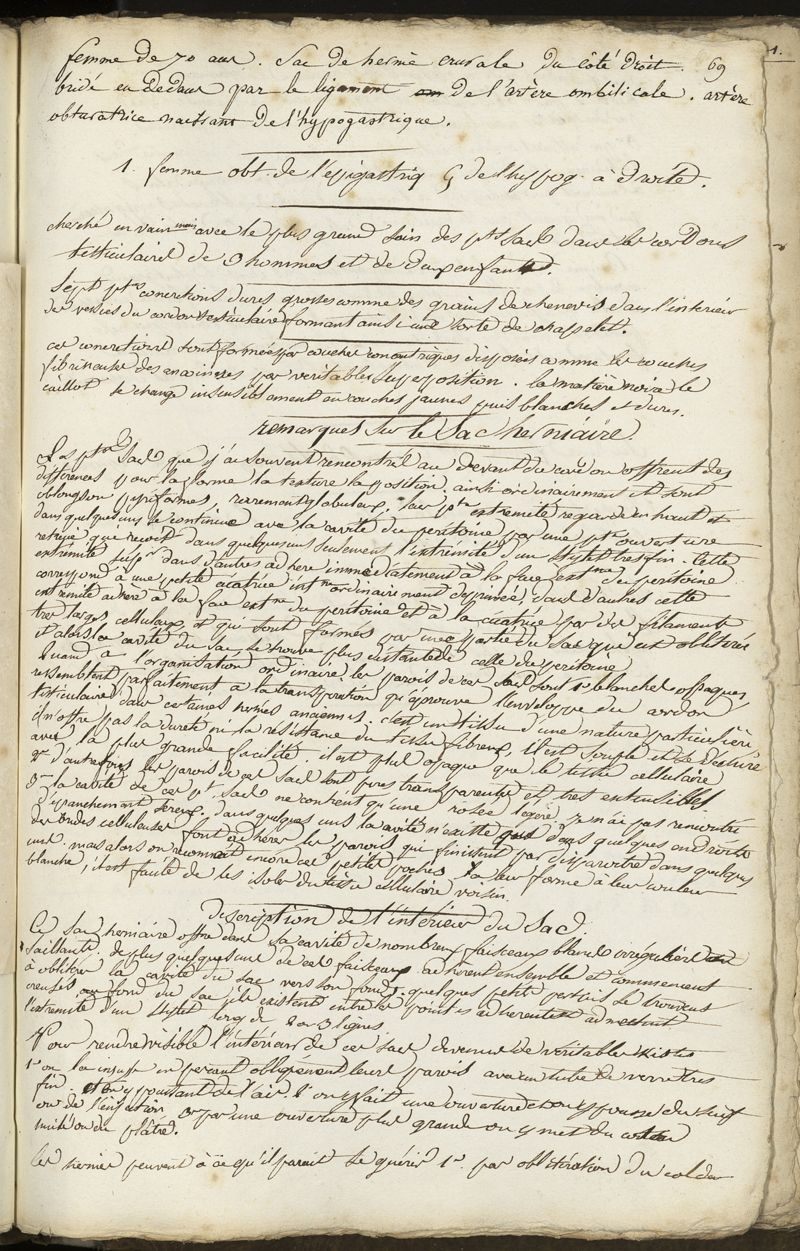 femme de 70 ans. Sac de hernie crurale du côté droit. 69
bridé en dedans par le ligament de l'artère ombilicale. artère
obturatrice naissant de l'hypogastrique.
1. femme obt. de l'épigastriq G de l'hypog. à droite.
cherché en vain mais avec le plus grand soin des pts sacs dans les cordons
testiculaires de 3 hommes et de deux enfants.
Sept ptes concretions dures grosses comme des grains de chenevis dans l'interieur
des vesies du cordon testiculaire formant ainsi une sorte de chapelet.
ces concretions sont formées par couches concentriques disposées comme les couches
fibrineuses des anevrismes par veritable superposition. la matière noire le
caillot se change insensiblement en couches jaunes puis blanches et dures.
remarques sur le Sac herniaire.
Les pts Sacs que j'ai souvent rencontrés au devant du offrent des
differences pour la forme la texture la position. ainsi ordinairement ils sont
oblongs ou pyriformes, rarement globuleux. leur pte extremité regarde en haut et
dans quelques uns se continue avec la cavité du peritoine par une pte ouverture
retrecie que reçoit dans quelques uns seulement l'extrémité d'un stylet tres fin. Cette
extrémité supre dans d'autres adhere immediatement à la face extne du peritoine
correspond à une petite cicatrice intne ordinairement dans d'autres cette
extremité adhere à la face extne du peritoine et à la cicatrice par des filements
tres larges celluleux et qui sont formés par une partie du sac qui est oblitérée
et alors la cavité du sac se trouve plus distante de celle du peritoine
Quand à l'organisation ordinaire les parois de ces sacs sont 1° blanches opaques,
ressemblent parfaitement à la transformation qu'éprouve l'enveloppe du cordon
testiculaire dans certaines hernies anciennes. c'est un tissu d'une nature particulière
il n'offre pas la dureté ni la resistance du tissu fibreux, il est souple et se déchire
avec la plus grande facilité. il est plus opaque que le tissu cellulaire
2° d'autrefois les parois de ces sacs sont fines transparentes et tres extensibles.
3° la cavité de ces pts sacs ne contient qu'une rosée légère, je n'ai pas rencontré
d'epanchement sereux, dans quelques uns la cavité n'existe que dans quelques endroits
des brides celluleuses font adhérer les parois qui finissent par disparoitre dans quelques
uns. mais alors on reconnoit encore ces petites poches à leur forme à leur couleur
blanche, il est facile de les isoler du tissu cellulaire voisin.
Description de l'intérieur du Sac.
Ce sac herniaire offre dans sa cavité de nombreux faisceaux blancs irréguliers
saillants. de plus quelques uns de ces faisceaux adhérent ensemble et commencent
à oblitérer la cavité du sac vers son fond; quelques petits pertuis se trouvent
creusés au fond du sac, ils existent entre les points adherents et admettent
l'extrémité d'un stylet long de 2 ou 3 lignes.
Pour rendre visible l'intérieur de ces sacs devenus de véritables kistes
1° on les insufle en perçant obliquement leurs parois avec un tube de verre tres
fin. et en y poussant de l'air. 2° on y fait une ouverture et on y pousse du suif
ou de l'injection, 3° par une ouverture plus grande on y met du coton
ou du plâtre.
Les hernies peuvent à ce qu'il parait se guérir 1° par oblitération du col du